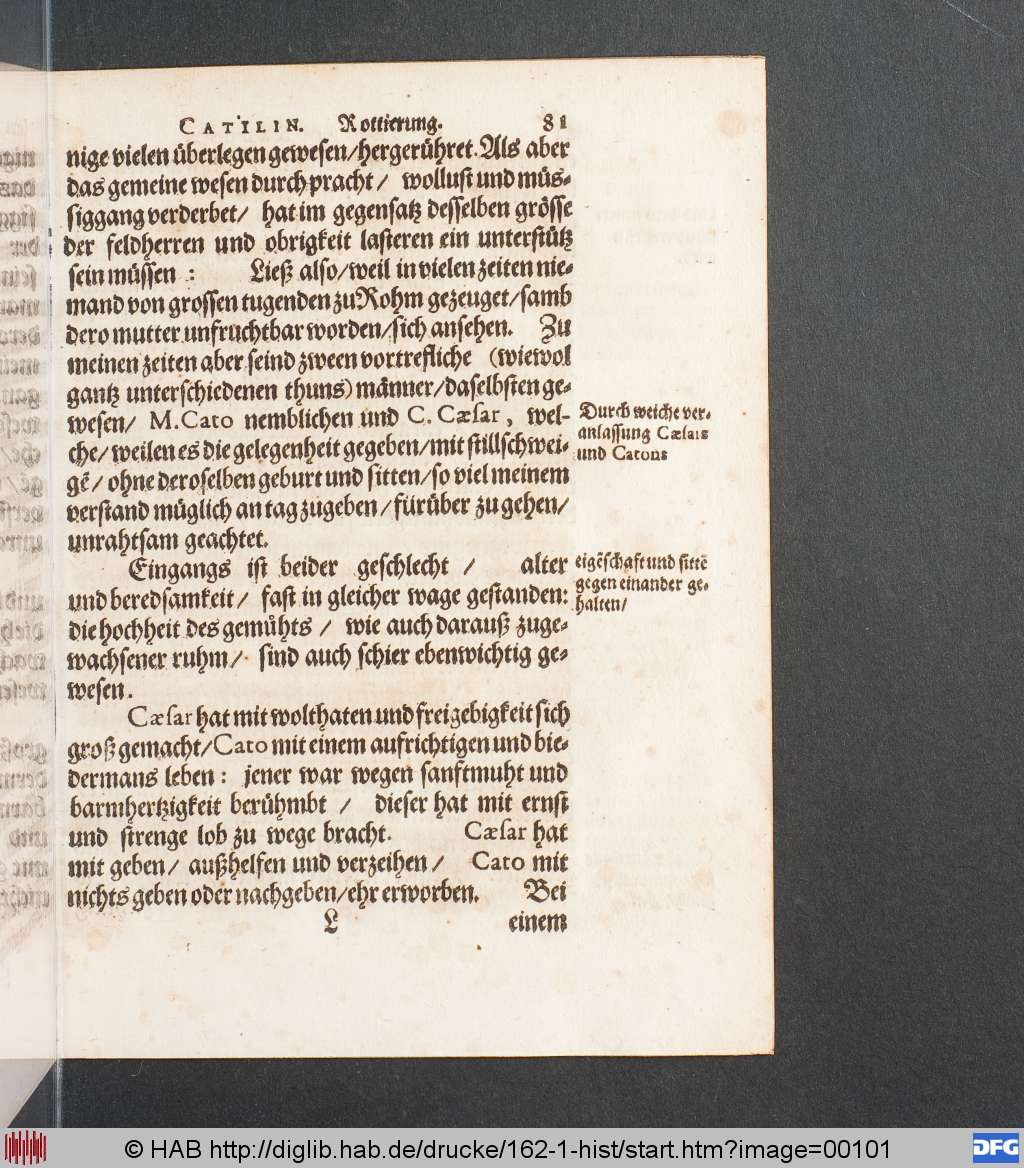 CATILIN. Rottierung. 81
nige vielen überlegen gewesen/hergerühret. Als aber
das gemeine wesen durch pracht/ wollust und müs-
siggang verderbet/ hat im gegensatz desselben grösse
der feldherren und obrigkeit lasteren ein unterstütz
sein müssen : Ließ also/weil in vielen zeiten nie-
mand von grossen tugenden zu Rohm gezeuget/samb
dero mutter unfruchtbar worden/sich ansehen. Zu
meinen zeiten aber seind zween vortrefliche (wiewol
gantz unterschiedenen thuns) männer/daselbsten ge-
wesen/ M. Cato nemblichen und C. Cæsar, wel-
che/weilen es die gelegenheit gegeben/mit stillschwei-
gẽ/ ohne deroselben geburt und sitten/so viel meinem
verstand müglich an tag zugeben/fürüber zu gehen/
unrahtsam geachtet.
Durch weiche ver-
anlassung Cæsars
und Catons
Eingangs ist beider geschlecht / alter
und beredsamkeit/ fast in gleicher wage gestanden:
die hochheit des gemühts / wie auch darauß zuge-
wachsener ruhm/ sind auch schier ebenwichtig ge-
wesen.
eigẽschaft und sittẽ
gegen einander ge-
halten/
Cæsar hat mit wolthaten und freigebigkeit sich
groß gemacht/Cato mit einem aufrichtigen und bie-
dermans leben : jener war wegen sanftmuht und
barmhertzigkeit berühmbt / dieser hat mit ernst
und strenge lob zu wege bracht. Cæsar hat
mit geben/ außhelfen und verzeihen/ Cato mit
nichts geben oder nachgeben/ehr erworben. Bei
L einem
© HAB http://diglib.hab.de/drucke/162-1-hist/start.htm?image=00101
DFG